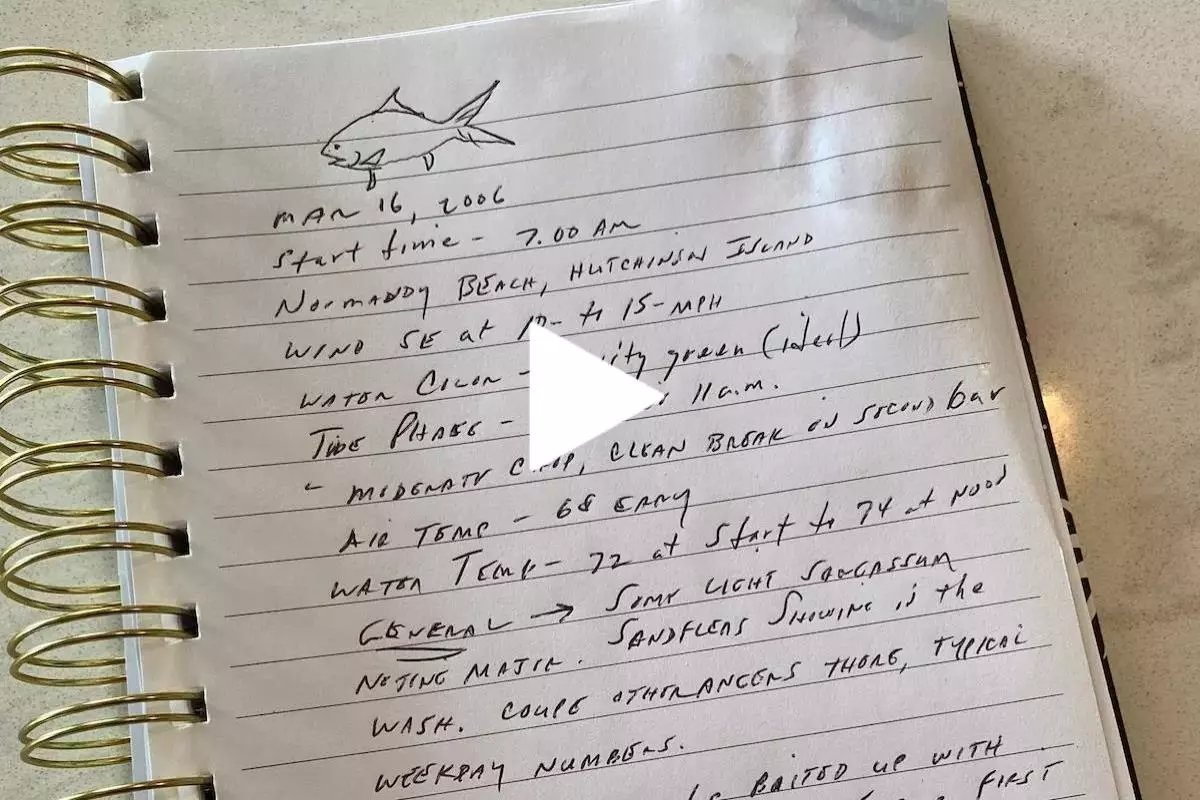 MAR 16, 2006
Start time - 7.00 AM
NORMANDY BEACH, HUTCHINSON ISLAND
WIND SE at to 15-MPH
WATER COLOR - green (ideal)
TIDE PHASE - 11 a.m.
" MODERATE CHOP, CLEAN BREAK ON SECOND bar
AIR TEMP - 68 EARLY
WATER TEMP - 72 at start to 74 at NOON
GENERAL → SOME LIGHT SARGASSUM
NOTING MAJOR. SANDFLEAS SHOWING in the
WASH. COUPLE OTHER ANGLERS THERE, TYPICAL
WEEKDAY NUMBERS.
BAITED UP WITH
FIRST